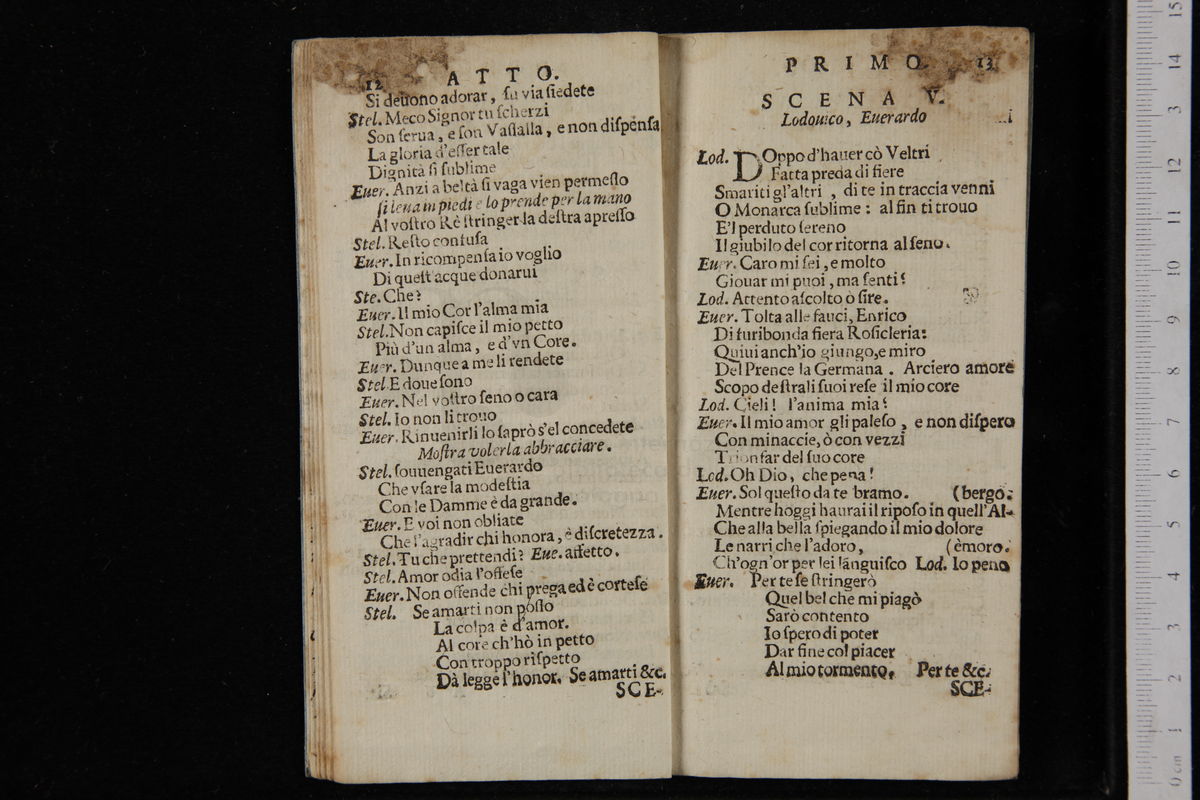 12 ATTO.
Si deuono adorar, sù via siedete
Stel. Meco Signor tu scherzi
Son serua, e son Vassalla, e non dispensa
La gloria d'esser tale
Dignità si sublime
Euer. Anzi a beltà si vaga vien permesso
si leua in piedi e lo prende per la mano
Al vostro Rè stringer la destra apresso
Stel. Resto confusa
Euer. In ricompensa io voglio
Di quest'acque donarui
Ste. Che?
Euer. Il mio Cor l'alma mia
Stel. Non capisce il mio petto
Più d'un alma, e d'vn Core.
Euer. Dunque a me li rendete
Stel. E doue sono
Euer. Nel vostro seno o cara
Stel. Io non li trouo
Euer. Rinuenirli Io saprò s'el concedete
Mostra volerla abbracciare.
Stel. souuengati Euerardo
Che vsare la modestia
Con le Damme è da grande.
Euer. E voi non obliate
Che l'agradir chi honora, è discretezza.
Stel. Tu che prettendi? Eue. affetto.
Stel. Amor odia l'offese
Euer. Non offende chi prega ed è cortese
Stel. Se amarti non posso
La colpa è d'amor.
Al core ch'hò in petto
Con troppo rispetto
Dà legge l'honor. Se amarti &c.
SCE-
PRIMO. 13
SCENA V.
Lodouico, Euerardo
Lod. DOppo d'hauer cò Veltri
Fatta preda di fiere
Smariti gl'altri, di te in traccia venni
O Monarca sublime: al fin ti trouo
E'l perduto sereno
Il giubilo del cor ritorna al seno.
Euer. Caro mi sei, e molto
Giouar mi puoi, ma senti?
Lod. Attento ascolto ò sire.
Euer. Tolta alle fauci, Enrico
Di furibonda fiera Rosicleria:
Quiui anch'io giungo, e miro
Del Prence la Germana. Arciero amore
Scopo de strali suoi rese il mio core
Lod. Cieli! l'anima mia?
Euer. Il mio amor gli paleso, e non dispero
Con minaccie, ò con vezzi
Trionfar del suo core
Lod. Oh Dio, che pena!
Euer. Sol questo da te bramo. (bergo.
Mentre hoggi haurai il riposo in quell'Al-
Che alla bella spiegando il mio dolore
Le narri che l'adoro, (èmoro.
Ch'ogn'or per lei lãguisco Lod. Io peno
Euer. Per te se stringerò
Quel bel che mi piagò
Sarò contento
Io spero di poter
Dar fine col piacer
Al mio tormento. Per te &c.
SCE-